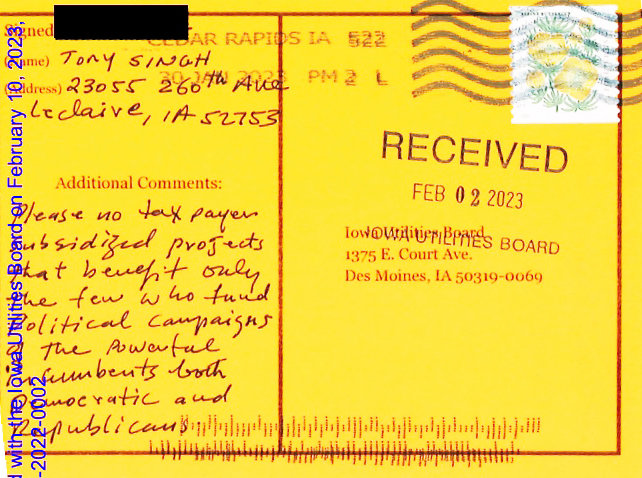 Signed
Name) TONY SINGH
Address) 23055 260th Ave
Leclaire, IA 52753
Additional Comments:
Please no tax payer
subsidized projects
that benefit only
the few who fund
Political campaigns
The Powerful
incumbents both
Democratic and
Republicans.
CEDAR RAPIDS IA 522
30 JAN 2023 PM 2 L
RECEIVED
FEB 02 2023
IOWA UTILITIES BOARD
Iowa Utilities Board
1375 E. Court Ave.
Des Moines, IA 50319-0069
d with the Iowa Utilities Board on February 10, 2023,
-2022-0002